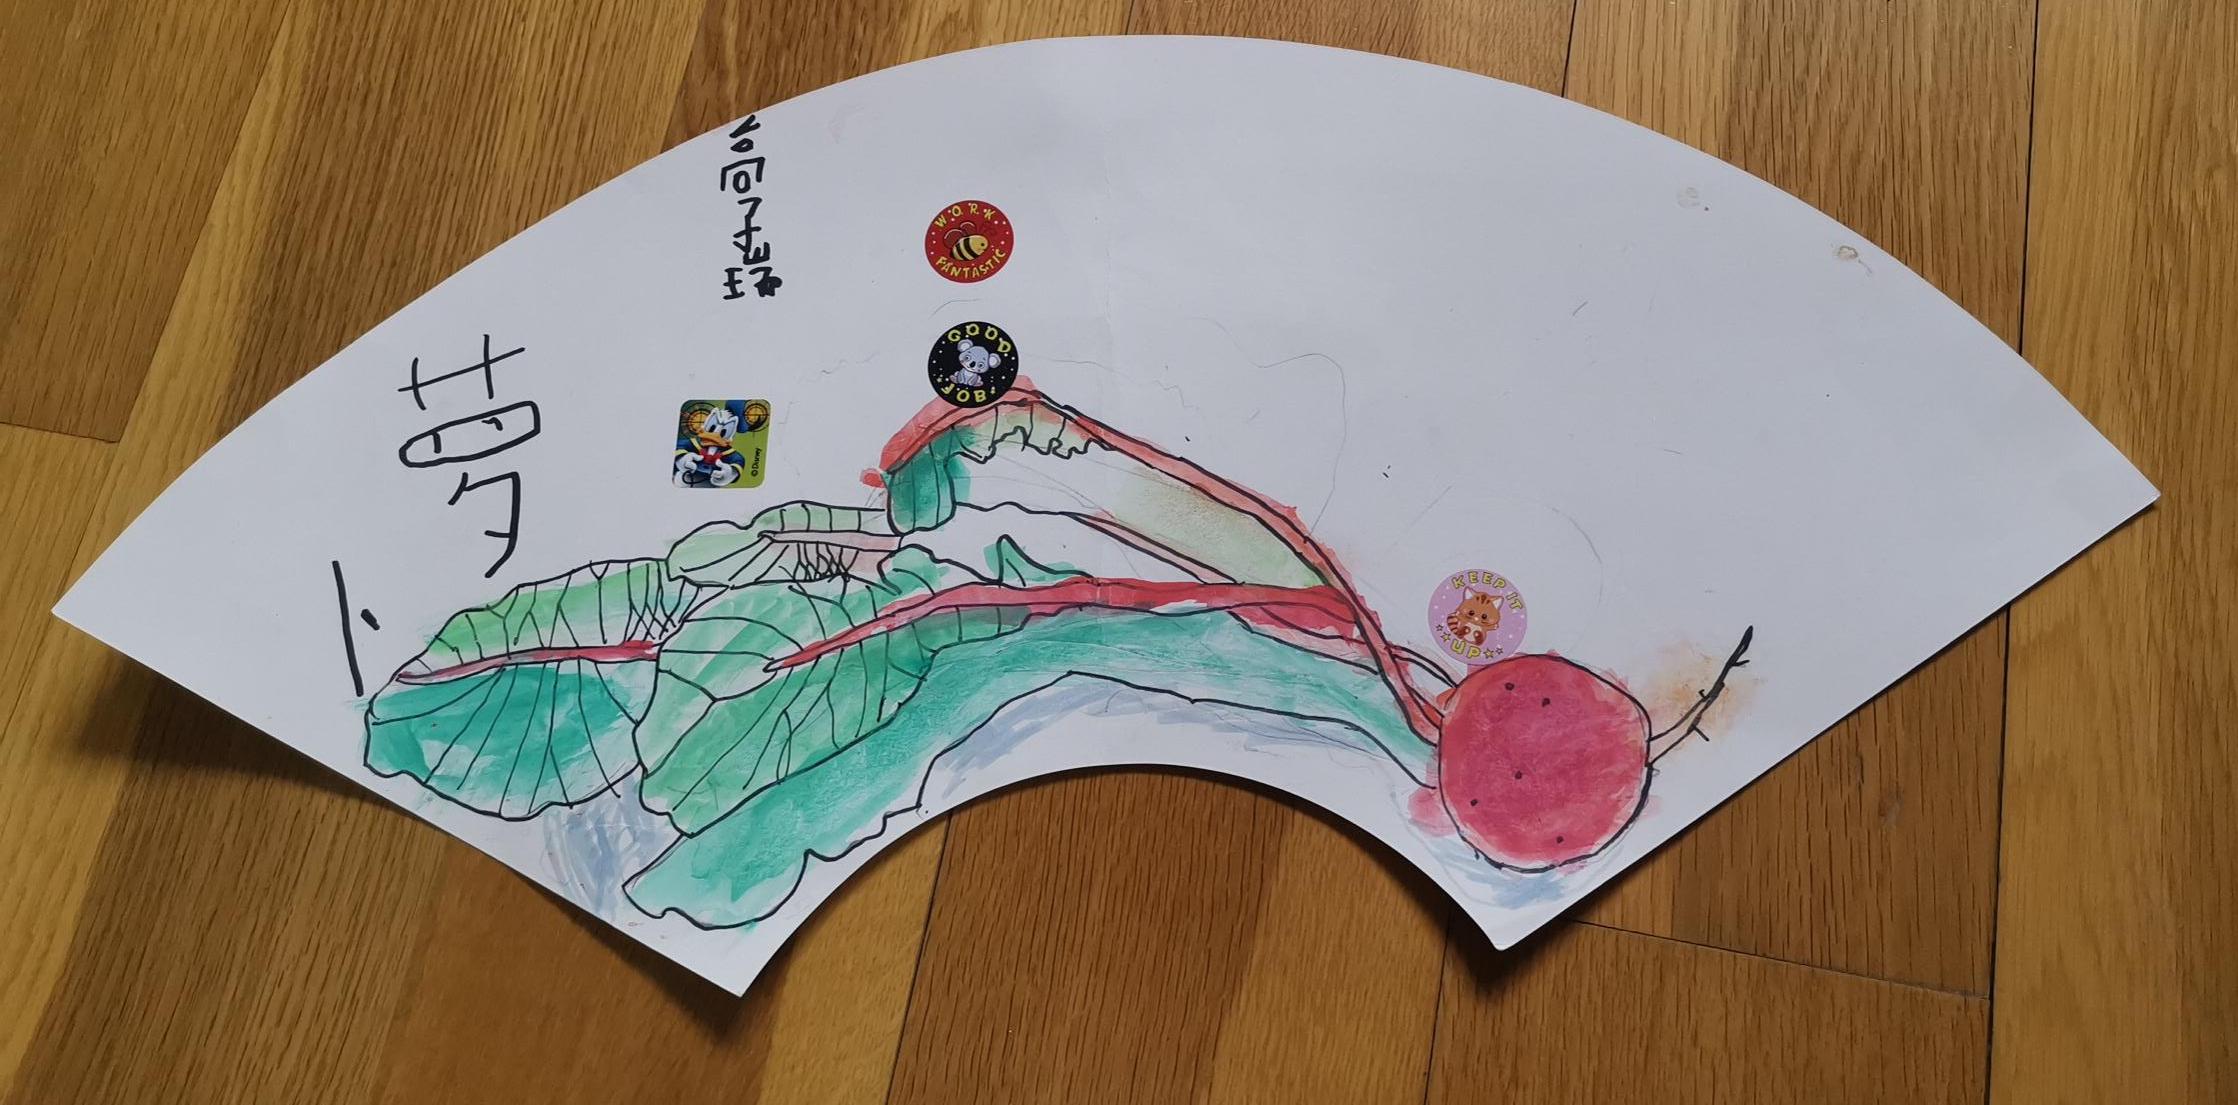 萝卜
WORK
FANTASTIC
GOOD
JOB!
© Disney
KEEP IT
UP